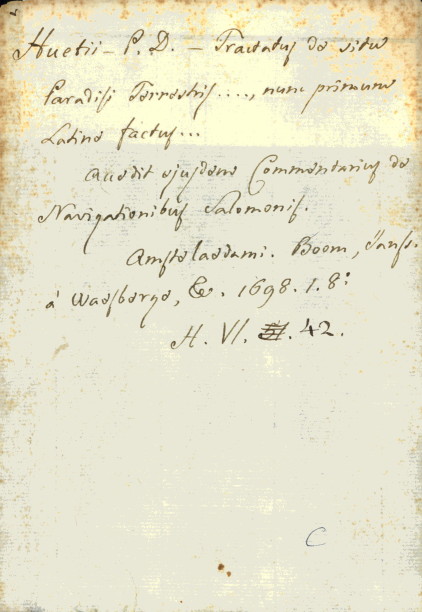 Huetii – P. D. – Tractatus de situ
Paradisi Terrestris ...., nunc primum
Latine factus...
Accedit ejusdem Commentarius de
Navigationibus Salomonis.
Amstelaedami. Boom, Janss.
à Waesberge, &c. 1698. 1. 8º
H. VI. 42.
C